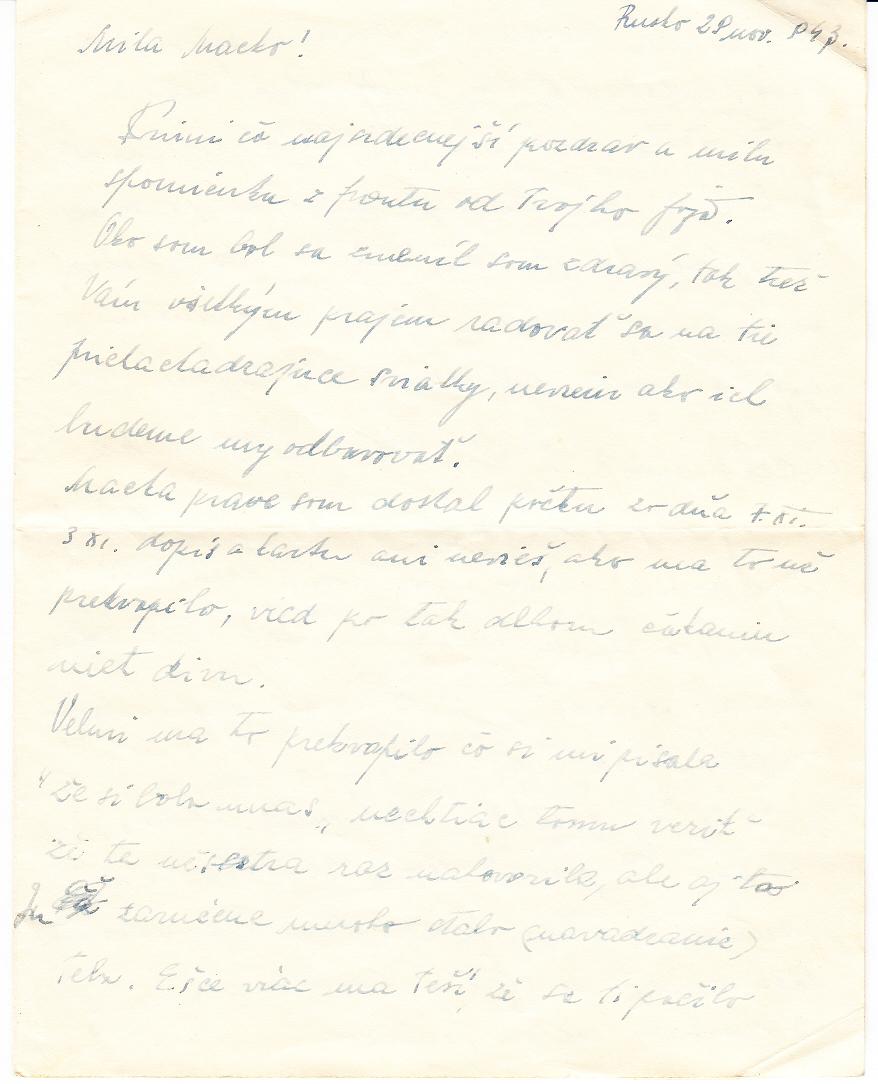 Rusko 28 nov. 943.
Milá Macko!
najsrdecnejší pozdrav a milu
spomienku z frontu od Tvojho
Ako som bol sa zmenil som zdravý, tak tiež
Vám všetkým prajem radovať sa na tie
sviatky, neviem ako ich
budeme my odbavovať.
Macka prave som dostal poštu zo dňa 7. XI.
3 XI. dopis a kartu ani nevieš, ako ma to
prekvapilo, po tak dlhom čakaniu
niet divu.
Velmi ma to prekvapilo čo si mi pisala
že si bola unas, nechtiac tomu veriť
že ta sestra raz nahovorila, ale aj
zaručene mnoho stalo (navadzanie)
teba. Ešče viac ma teší, že sa ti pačilo